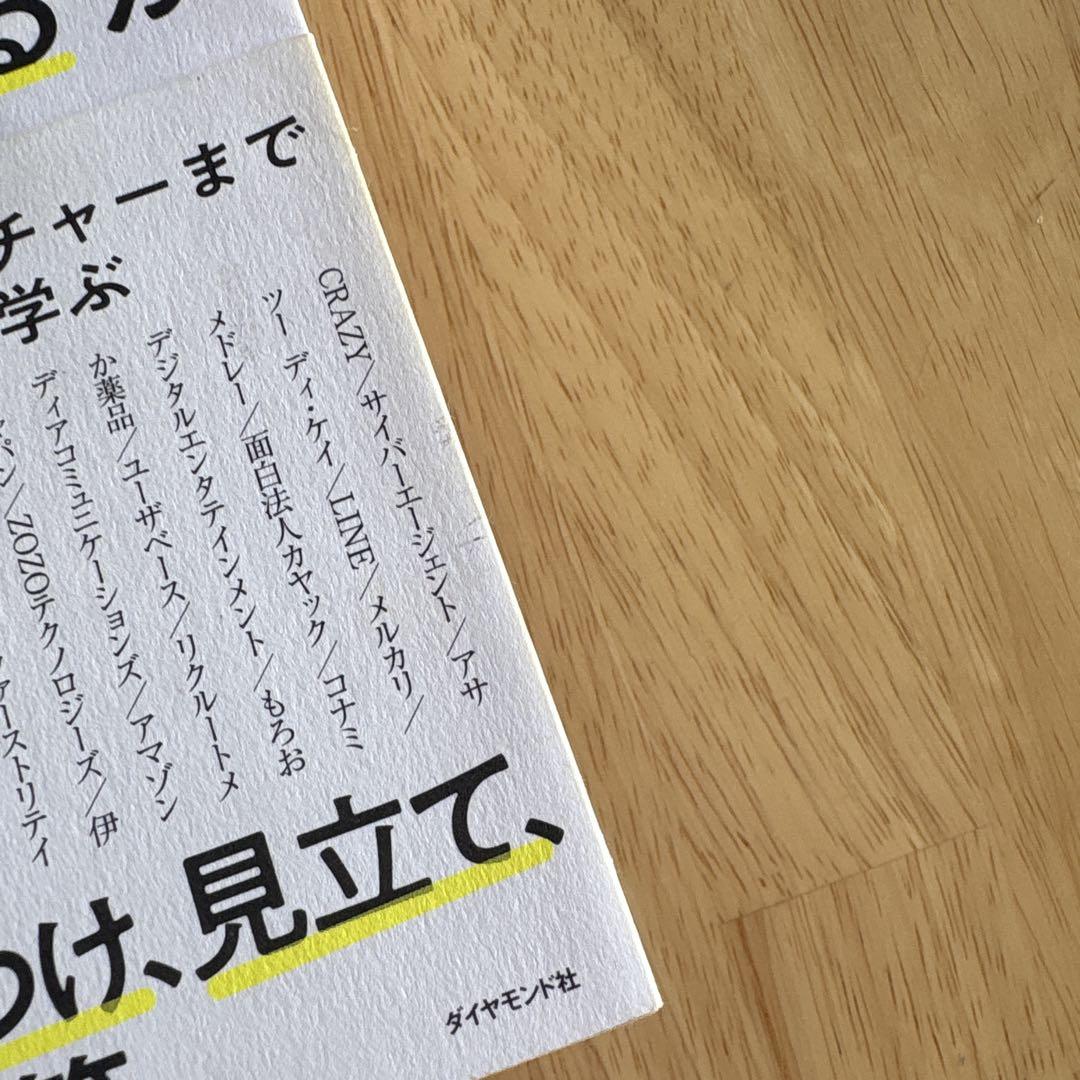 る
チャーまで
学ぶ
CRAZY/サイバーエージェント/アサ
ツー ディ・ケイ/LINE/メルカリ/
メドレー/面白法人カヤック/コナミ
デジタルエンタテインメント/もろお
か薬品/ユーザベース/リクルートメ
ディアコミュニケーションズ/アマゾン
パン/ZOZOテクノロジーズ/伊
ァーストリティ
け、見立て、
ダイヤモンド社